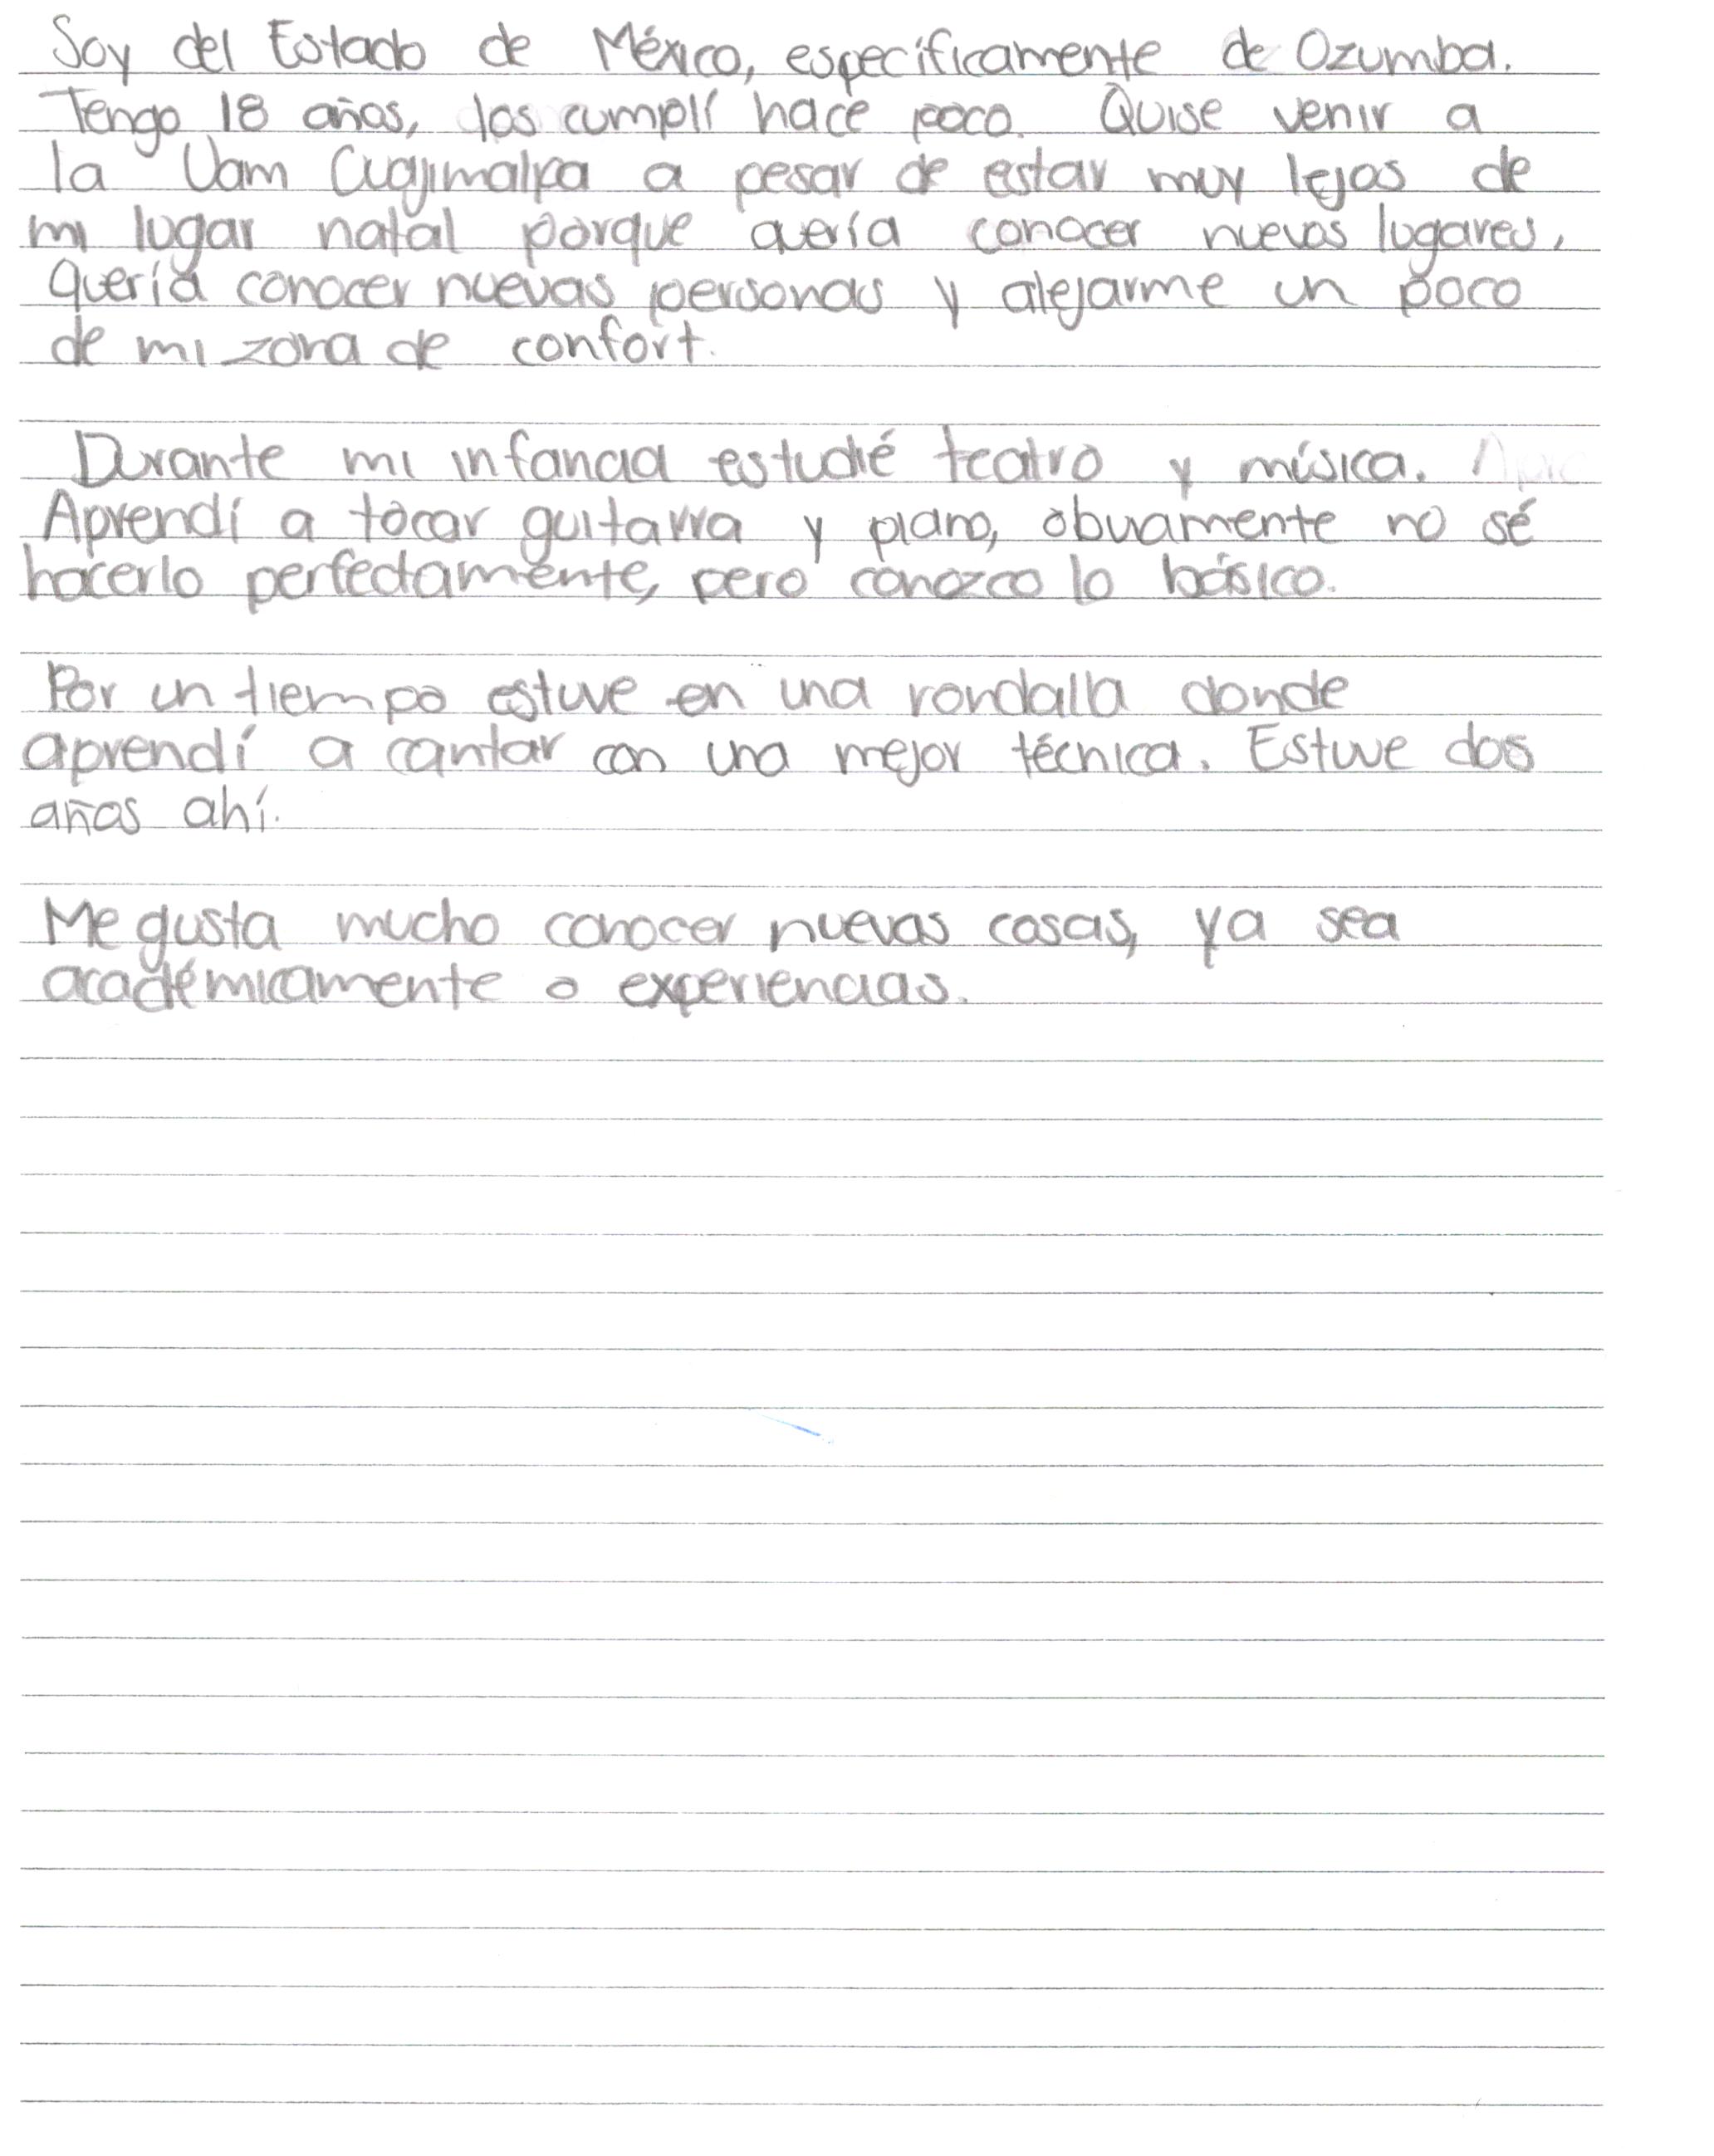 Soy del Estado de México, específicamente de Ozumba.
Tengo 18 años, los cumplí hace poco. Quise venir a
la Uam Cuajimalpa a pesar de estar muy lejos de
mi lugar natal porque quería conocer nuevos lugares,
quería conocer nuevas personas y alejarme un poco
de mi zona de confort.
Durante mi infancia estudié teatro y música.
Aprendí a tocar guitarra y piano, obviamente no sé
hacerlo perfectamente, pero conozco lo básico.
Por un tiempo estuve en una rondalla donde
aprendí a cantar con una mejor técnica. Estuve dos
años ahí.
Me gusta mucho conocer nuevas cosas, ya sea
académicamente o experiencias.